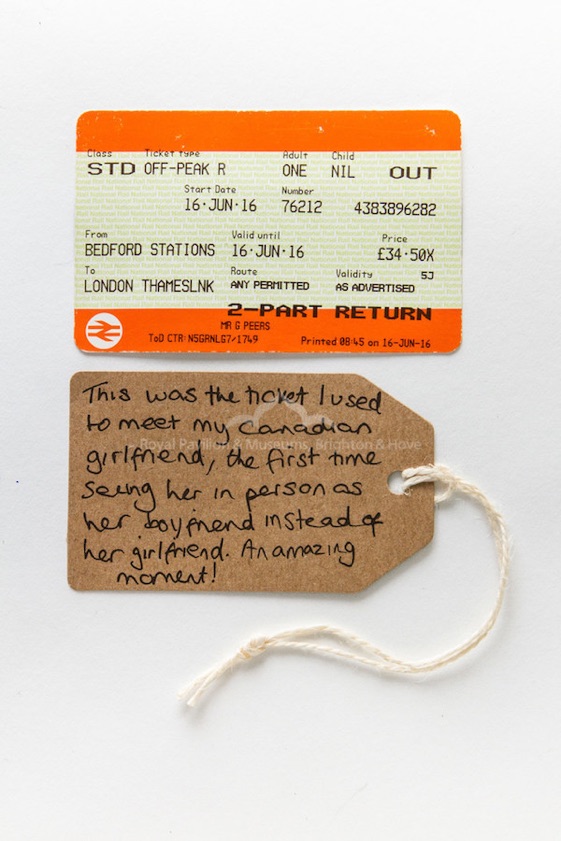 Class Ticket type Adult Child
STD OFF-PEAK R ONE NIL OUT
Start Date Number
16·JUN·16 76212 4383896282
From Valid until Price
BEDFORD STATIONS 16·JUN·16 £34·50X
To Route Validity 5J
LONDON THAMESLNK ANY PERMITTED AS ADVERTISED
2-PART RETURN
MR G PEERS
ToD CTR: N5GRNLG7/1749 Printed 08:45 on 16-JUN-16
This was the ticket I used
to meet my Canadian
© Royal Pavilion & Museums, Brighton & Hove
girlfriend, the first time
seeing her in person as
her boyfriend instead of
her girlfriend. An amazing
moment!